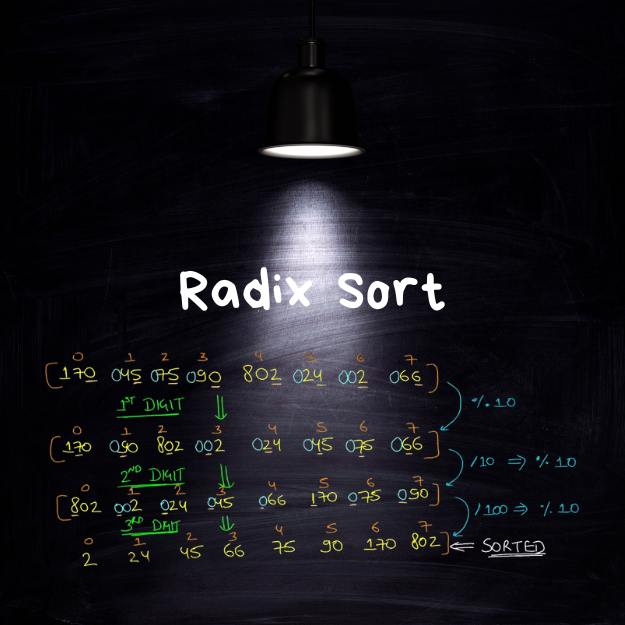 Radix Sort
0 1 2 3 4 5 6 7
[170 045 075 090 802 024 002 066]
%10
1ST DIGIT
0 1 2 3 4 5 6 7
[170 090 802 002 024 045 075 066]
/10 ⇒ %10
2ND DIGIT
0 1 2 3 4 5 6 7
[802 002 024 045 066 170 075 090]
/100 ⇒ %10
3RD DIGIT
0 1 2 3 4 5 6 7
2 24 45 66 75 90 170 802] ⇐ SORTED